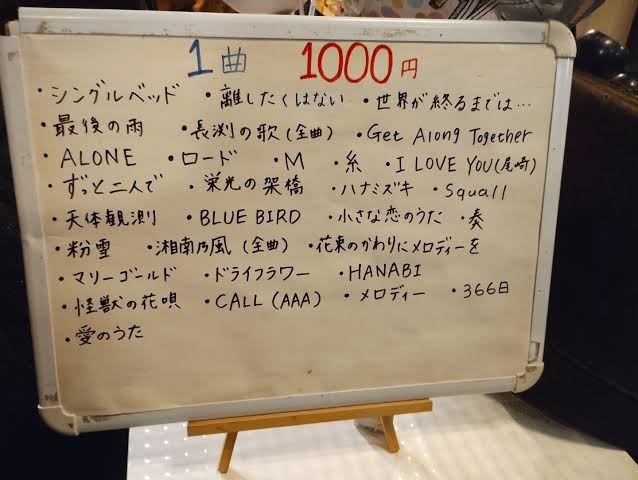 1曲 1000円
・シングルベッド ・離したくはない ・世界が終るまでは…
・最後の雨 ・長渕の歌(全曲) ・Get Along Together
・ALONE ・ロード ・M ・糸 ・I LOVE YOU(尾崎)
・ずっと二人で ・栄光の架橋 ・ハナミズキ ・Squall
・天体観測 ・BLUE BIRD ・小さな恋のうた ・奏
・粉雪 ・湘南乃風(全曲) ・花束のかわりにメロディーを
・マリーゴールド ・ドライフラワー ・HANABI
・怪獣の花唄 ・CALL(AAA) ・メロディー ・366日
・愛のうた